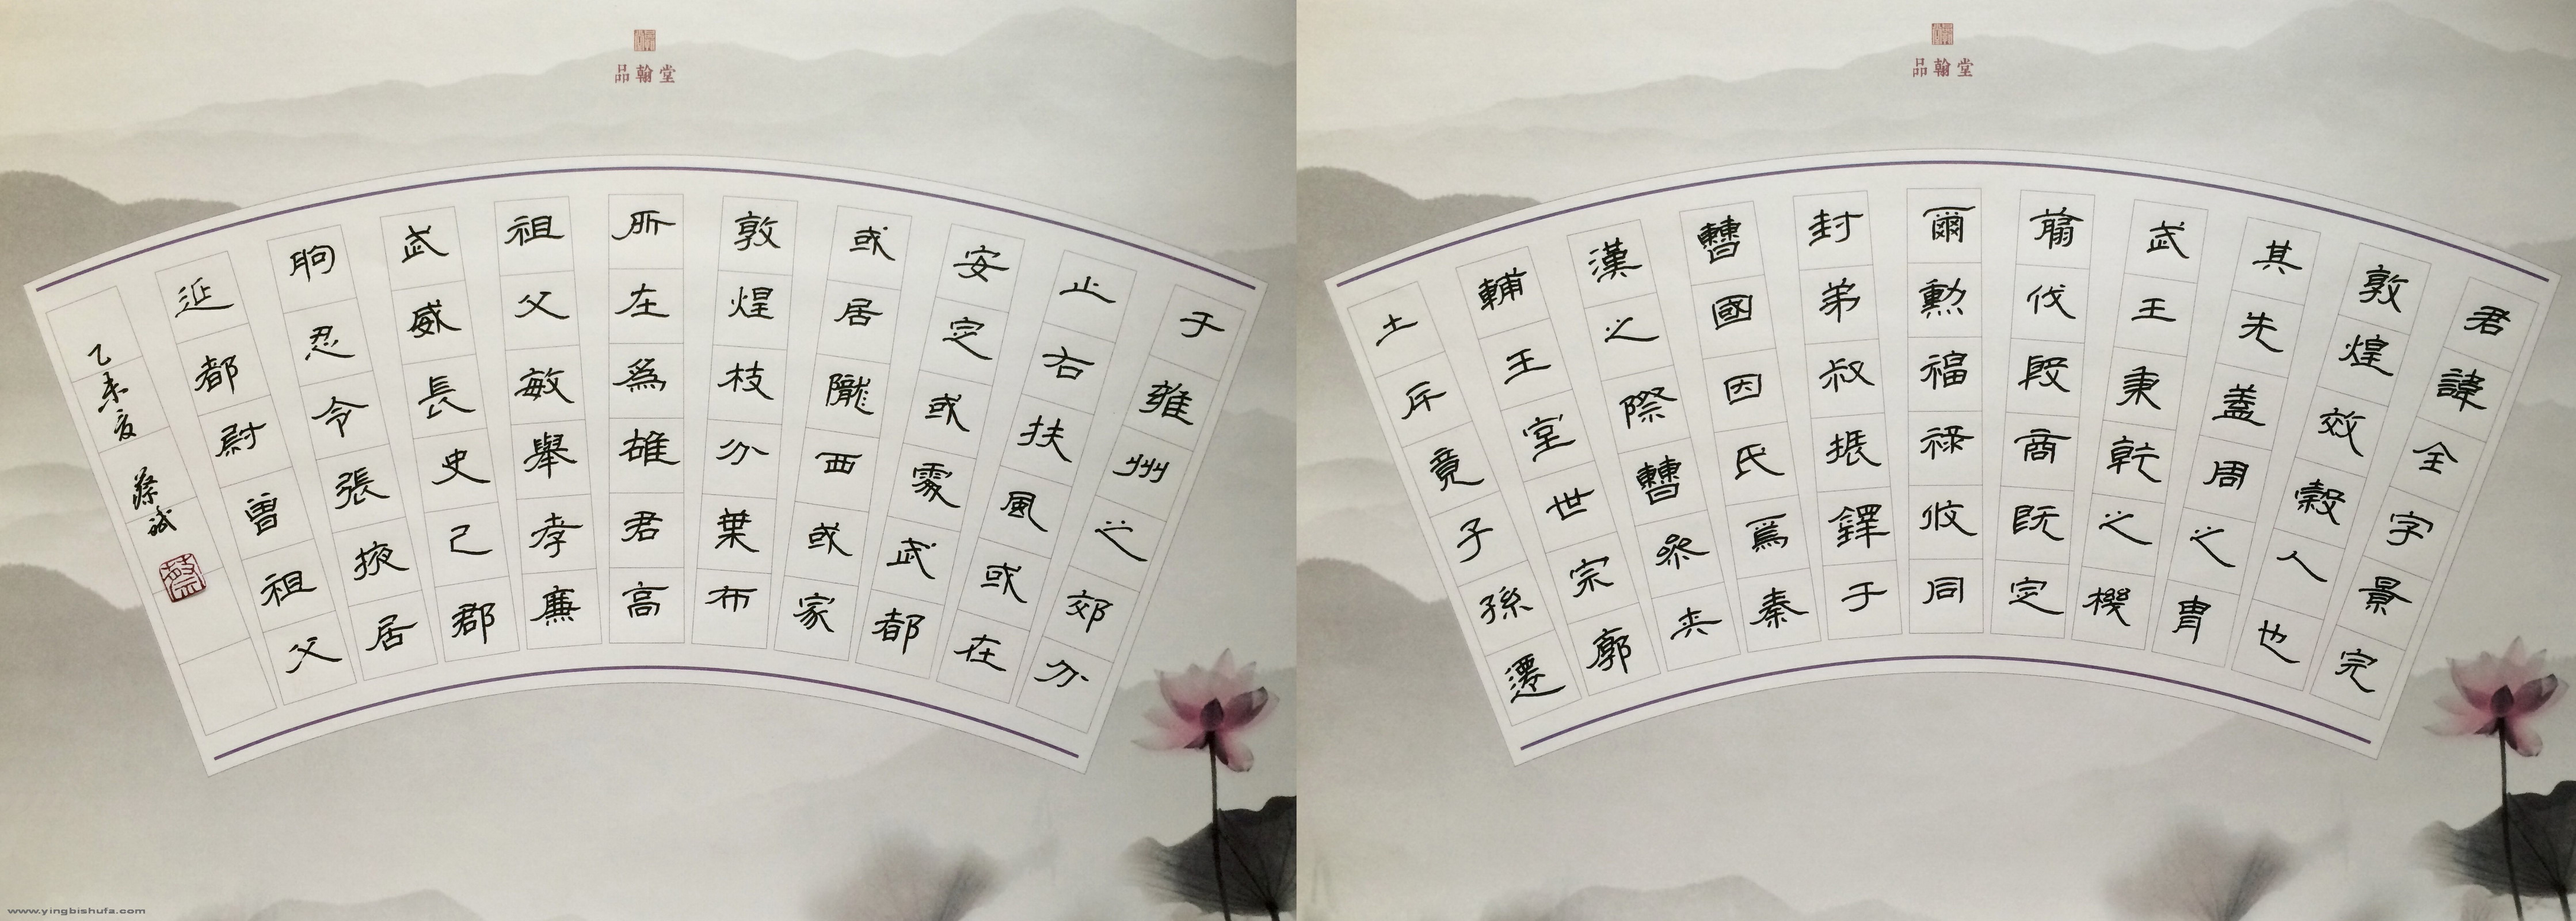 品翰堂
君諱全字景完
敦煌效穀人也
其先蓋周之胄
武王秉乾之機
翦伐殷商既定
爾勳福祿攸同
封弟叔振鐸于
曹國因氏焉秦
漢之際曹參夾
輔王室世宗廓
土斥竟子孫遷
品翰堂
于雍州之郊分
止右扶風或在
安定或處武都
或居隴西或家
敦煌枝分葉布
所在爲雄君高
祖父敏舉孝廉
武威長史巴郡
朐忍令張掖居
延都尉曾祖父
乙未夏 蔡
www.yingbishufa.com